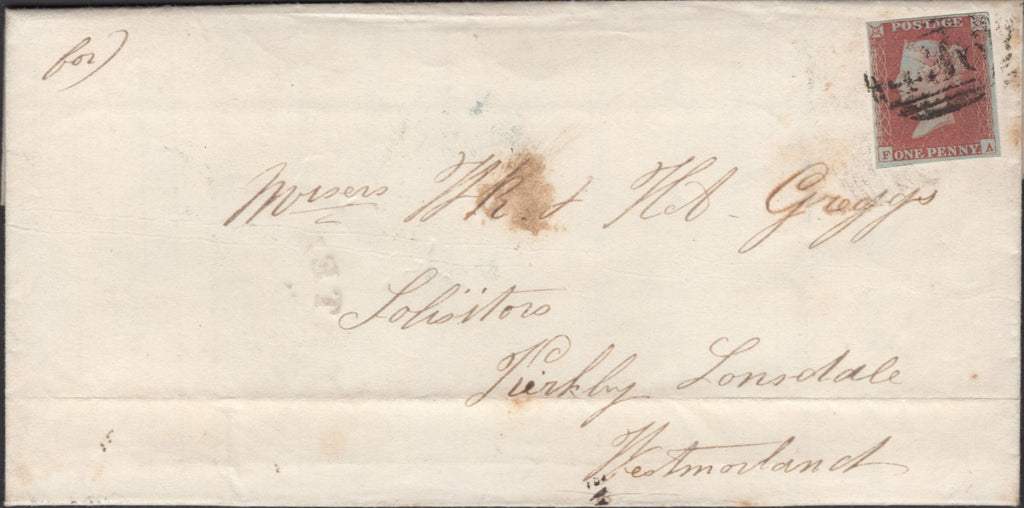 for)
POSTAGE
F ONE PENNY A
Messrs W R & H A Greggs
Solisitors
Kirkby Lonsdale
Westmorland